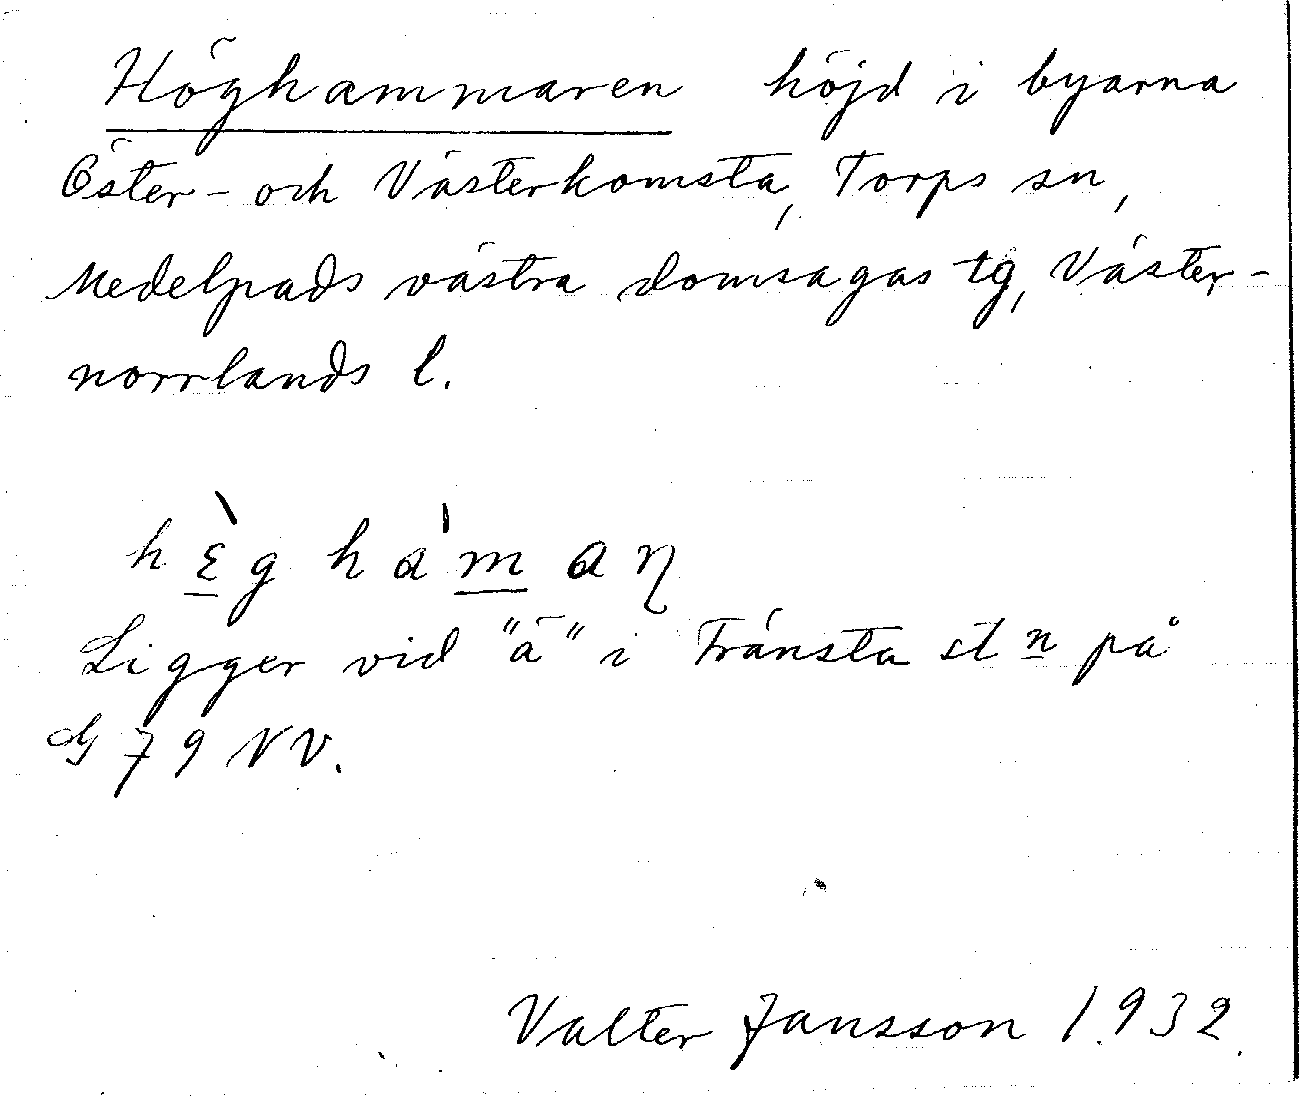 Höghammaren höjd i byarna
Öster- och Västerkomsta, Torps sn,
Medelpads västra domsagas tg, Väster-
norrlands l.
hɛ̀g hám aɳ
Ligger vid "ä" i Fränsta st n på
G 79 NV.
Valter Jansson 1932.